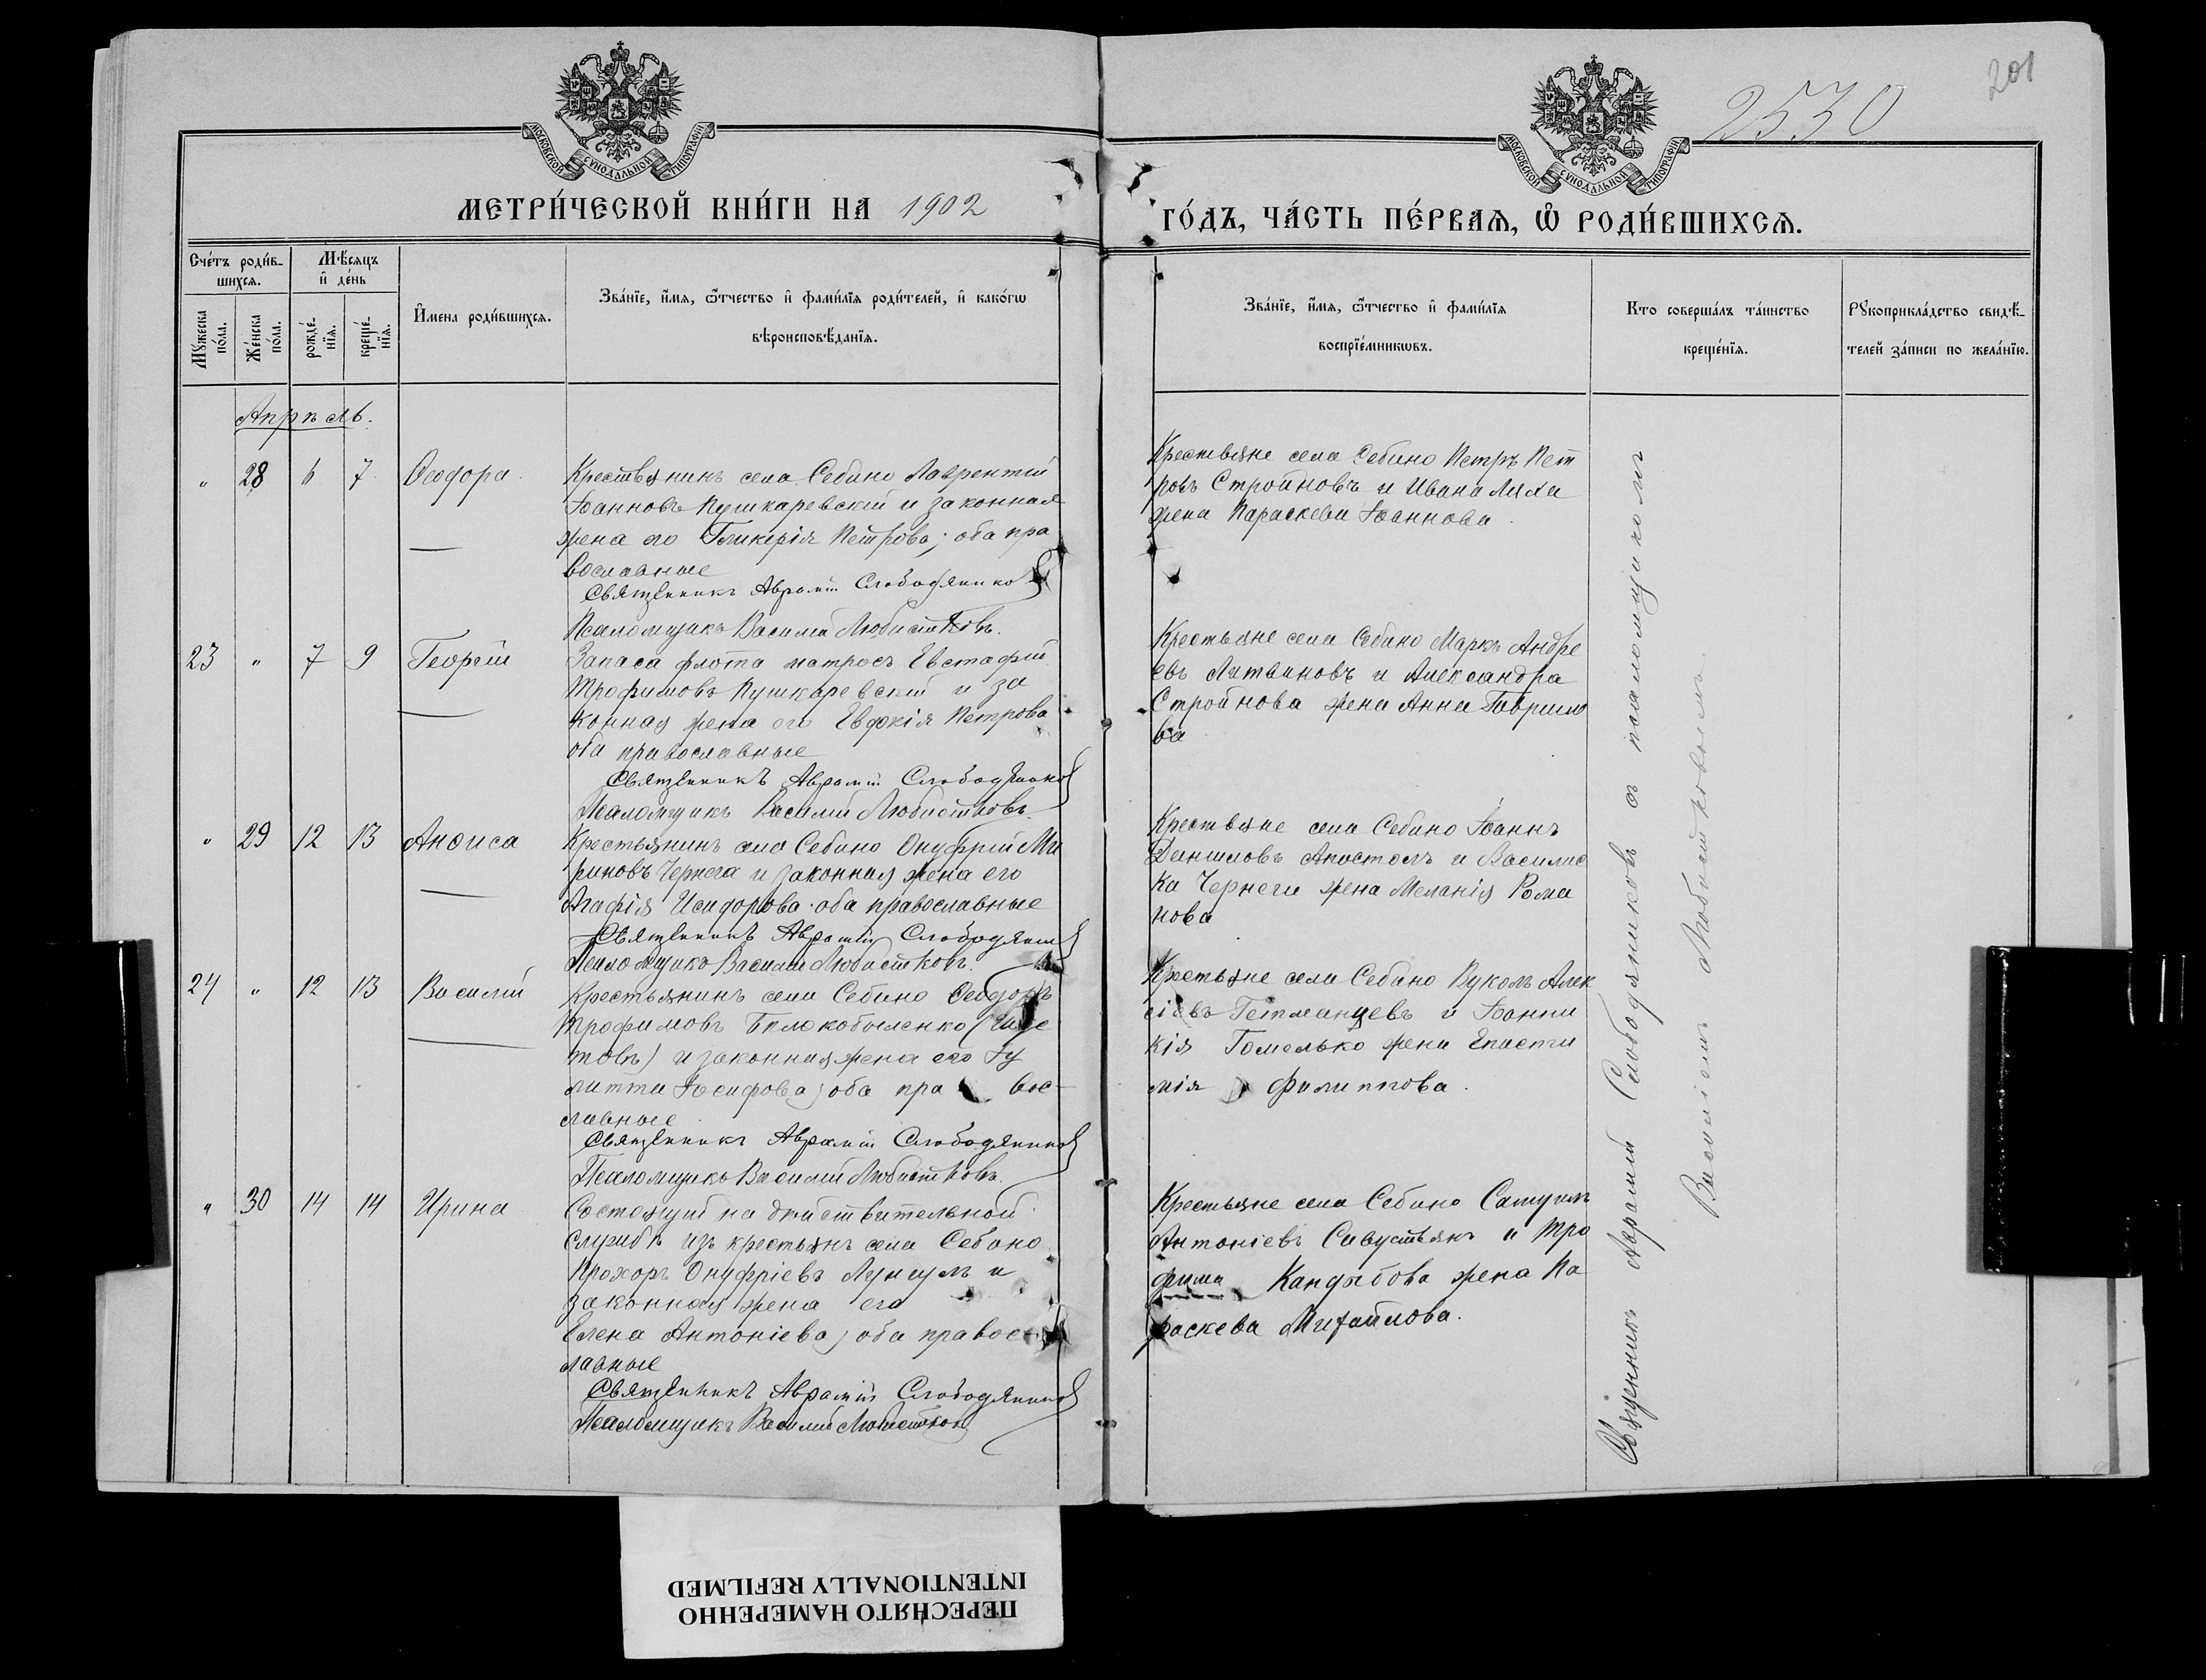 201
2530
МОСКОВСКОЙ СѴНОДАЛЬНОЙ ТИПОГРАФІИ
МОСКОВСКОЙ СѴНОДАЛЬНОЙ ТИПОГРАФІИ
МЕТРИ́ЧЕСКОЙ КНИ́ГИ НА 1902
ГО́ДЪ, ЧА́СТЬ ПЕ́РВАѦ, Ѡ҆ РОДИ́ВШИХСѦ.
Сче́тъ роди́в-
шихсѧ.
Мѣ́сѧцъ
и҆ де́нь
Мꙋ́жеска
по́ла.
Же́нска
по́ла.
рожде́-
нїѧ.
креще́-
нїѧ.
И҆мена роди́вшихсѧ.
Зва́нїе, и҆́мѧ, ѻ҆́тчество и҆ фами́лїѧ роди́телей, и҆ како́гѡ
вѣроисповѣ́данїѧ.
Зва́нїе, и҆́мѧ, ѻ҆́тчество и҆ фами́лїѧ
воспрїе́мникѡвъ.
Кто соверша́лъ та́инство
креще́нїѧ.
Рꙋкоприкла́дство свидѣ́-
телей за́писи по жела́нїю.
Апрѣль.
" 28 6 7 Ѳеодора
Крестьянинъ села Себино Лаврентій
Іоанновъ Пушкаревскій и законная
жена его Гликерія Петрова; оба пра
вославные
Священникъ Аврамій Слободяников
Псаломщикъ Василій Любистковъ.
Крестьяне села Себино Петръ Пет
ровъ Стройновъ и Ивана Ляха
жена Параскева Іоаннова.
23 " 7 9 Георгій
Запаса флота матросъ Евстафій
Трофимовъ Пушкаревскій и за
конная жена его Евдокія Петрова
оба православные
Священникъ Аврамій Слободяников
Псаломщикъ Василій Любистковъ.
Крестьяне села Себино Маркъ Андре
евъ Литвиновъ и Александра
Стройнова жена Анна Гаврило
ва
" 29 12 13 Анѳиса
Крестьянинъ села Себино Онуфрій Ма
риновъ Чернега и законная жена его
Агафія Исидорова оба православные
Священникъ Аврамій Слободяник
Псаломщикъ Василій Любистковъ.
Крестьяне села Себино Іоаннъ
Данииловъ Апостолъ и Василис
ка Чернеги жена Меланія Рома
нова
24 " 12 13 Василій
Крестьянинъ села Себино Ѳеодоръ
Трофимовъ Бѣлокобыленко
товъ) и законная жена его Іу
литта Іосифова; оба пра вос-
лавные
Священникъ Аврамій Слободяников
Псаломщикъ Василій Любистковъ.
Крестьяне села Себино Вуколъ Алек
сіевъ Гетманцевъ и Іоанни
кія Гомелько жена Еписти
мія Филиппова.
" 30 14 14 Ирина
Состоящій на дѣйствительной
службѣ изъ крестьянъ села Себино
Прохоръ Онуфріевъ Лунгулъ и
законная жена его
Елена Антоніева; оба правос
лавные
Священникъ Аврамій Слободяников
Псаломщикъ Василій Любистков
Крестьяне села Себино Самуилъ
Антоніевъ Савустьянъ и Тро
фима Кандыбова жена Па
раскева Михайлова.
Священникъ Аврамій Слободяниковъ съ псаломщикомъ
Василіемъ Любистковымъ
ПЕРЕСНЯТО НАМЕРЕННО
INTENTIONALLY REFILMED